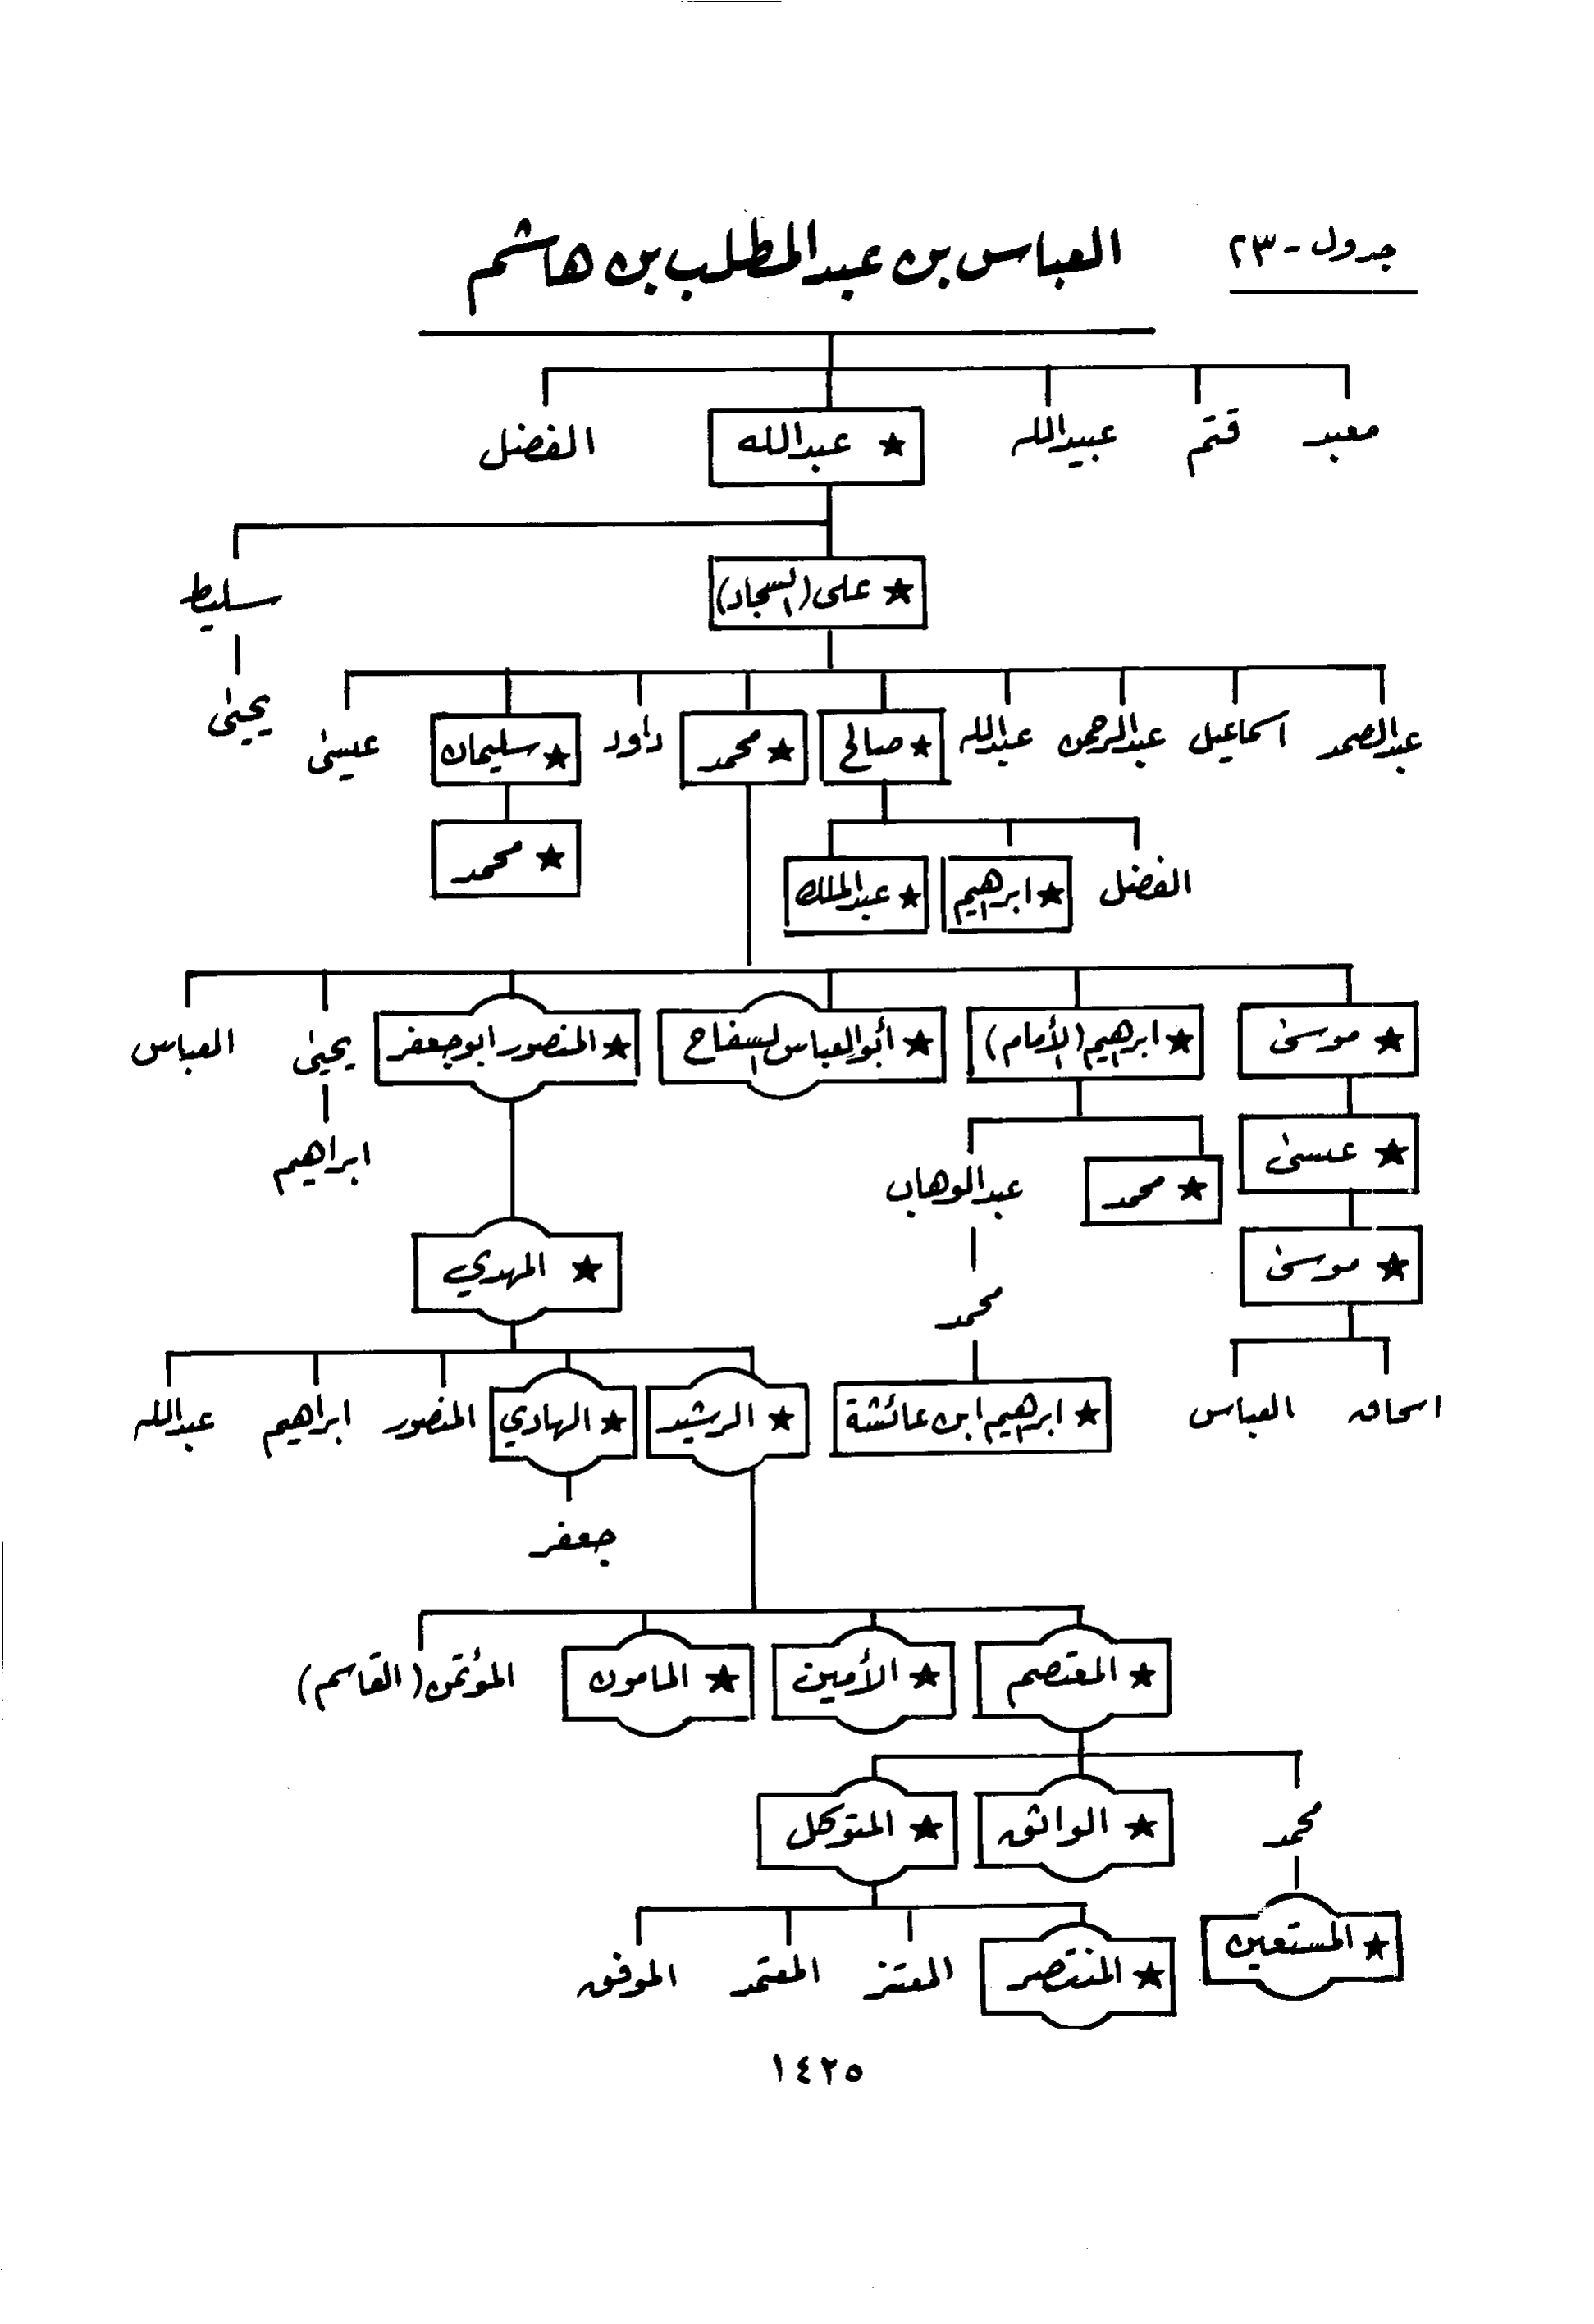 جدول - ٢٣
العباس بن عبد المطلب بن هاشم
معبد قثم عبيدالله ★ عبدالله الفضل
★ على (السجاد) سليط
يحيىٰ
عبدالصمد اسماعيل عبدالرحمن عبدالله ★ صالح ★ محمد داود ★ سليمان عيسىٰ
الفضل ★ ابرهيم ★ عبدالملك ★ محمد
★ موسىٰ ★ ابرهيم (الأمام) ★ أبوالعباس السفاح ★ المنصور ابوجعفر يحيىٰ العباس
★ عيسىٰ ★ محمد عبدالوهاب ابراهيم
★ موسىٰ محمد ★ المهدي
اسحاق العباس ★ ابرهيم ابن عائشة ★ الرشيد ★ الهادي المنصور ابراهيم عبدالله
جعفر
★ المعتصم ★ الأمين ★ المامون المؤتمن (القاسم)
محمد ★ الواثق ★ المتوكل
★ المستعين ★ المنتصر المعتز المعتمد الموفق
١٤٢٥